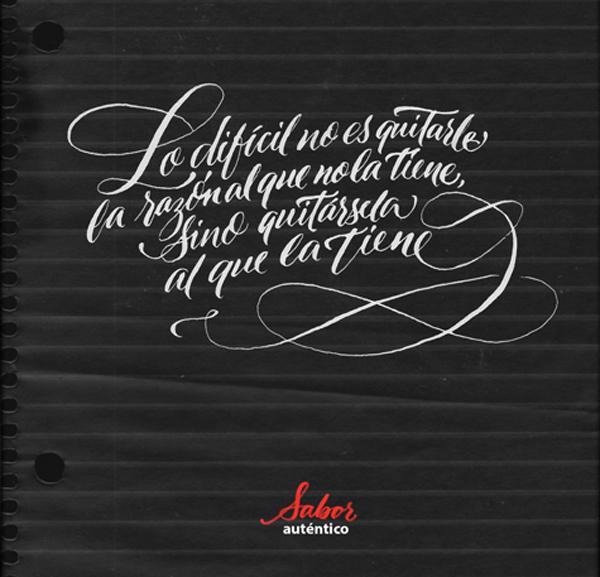 Lo difícil no es quitarle
la razón al que no la tiene,
sino quitársela
al que la tiene
Sabor
auténtico